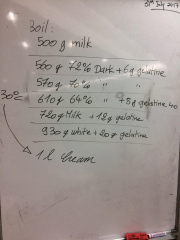 31st July 2017
Boil:
500 g milk
560 g 72% Dark + 6g gelatine
570 g 70% " "
30° 610 g 64% " + 8g gelatine
720 g Milk + 12g gelatine
930 g white + 20g gelatine
1 l Cream